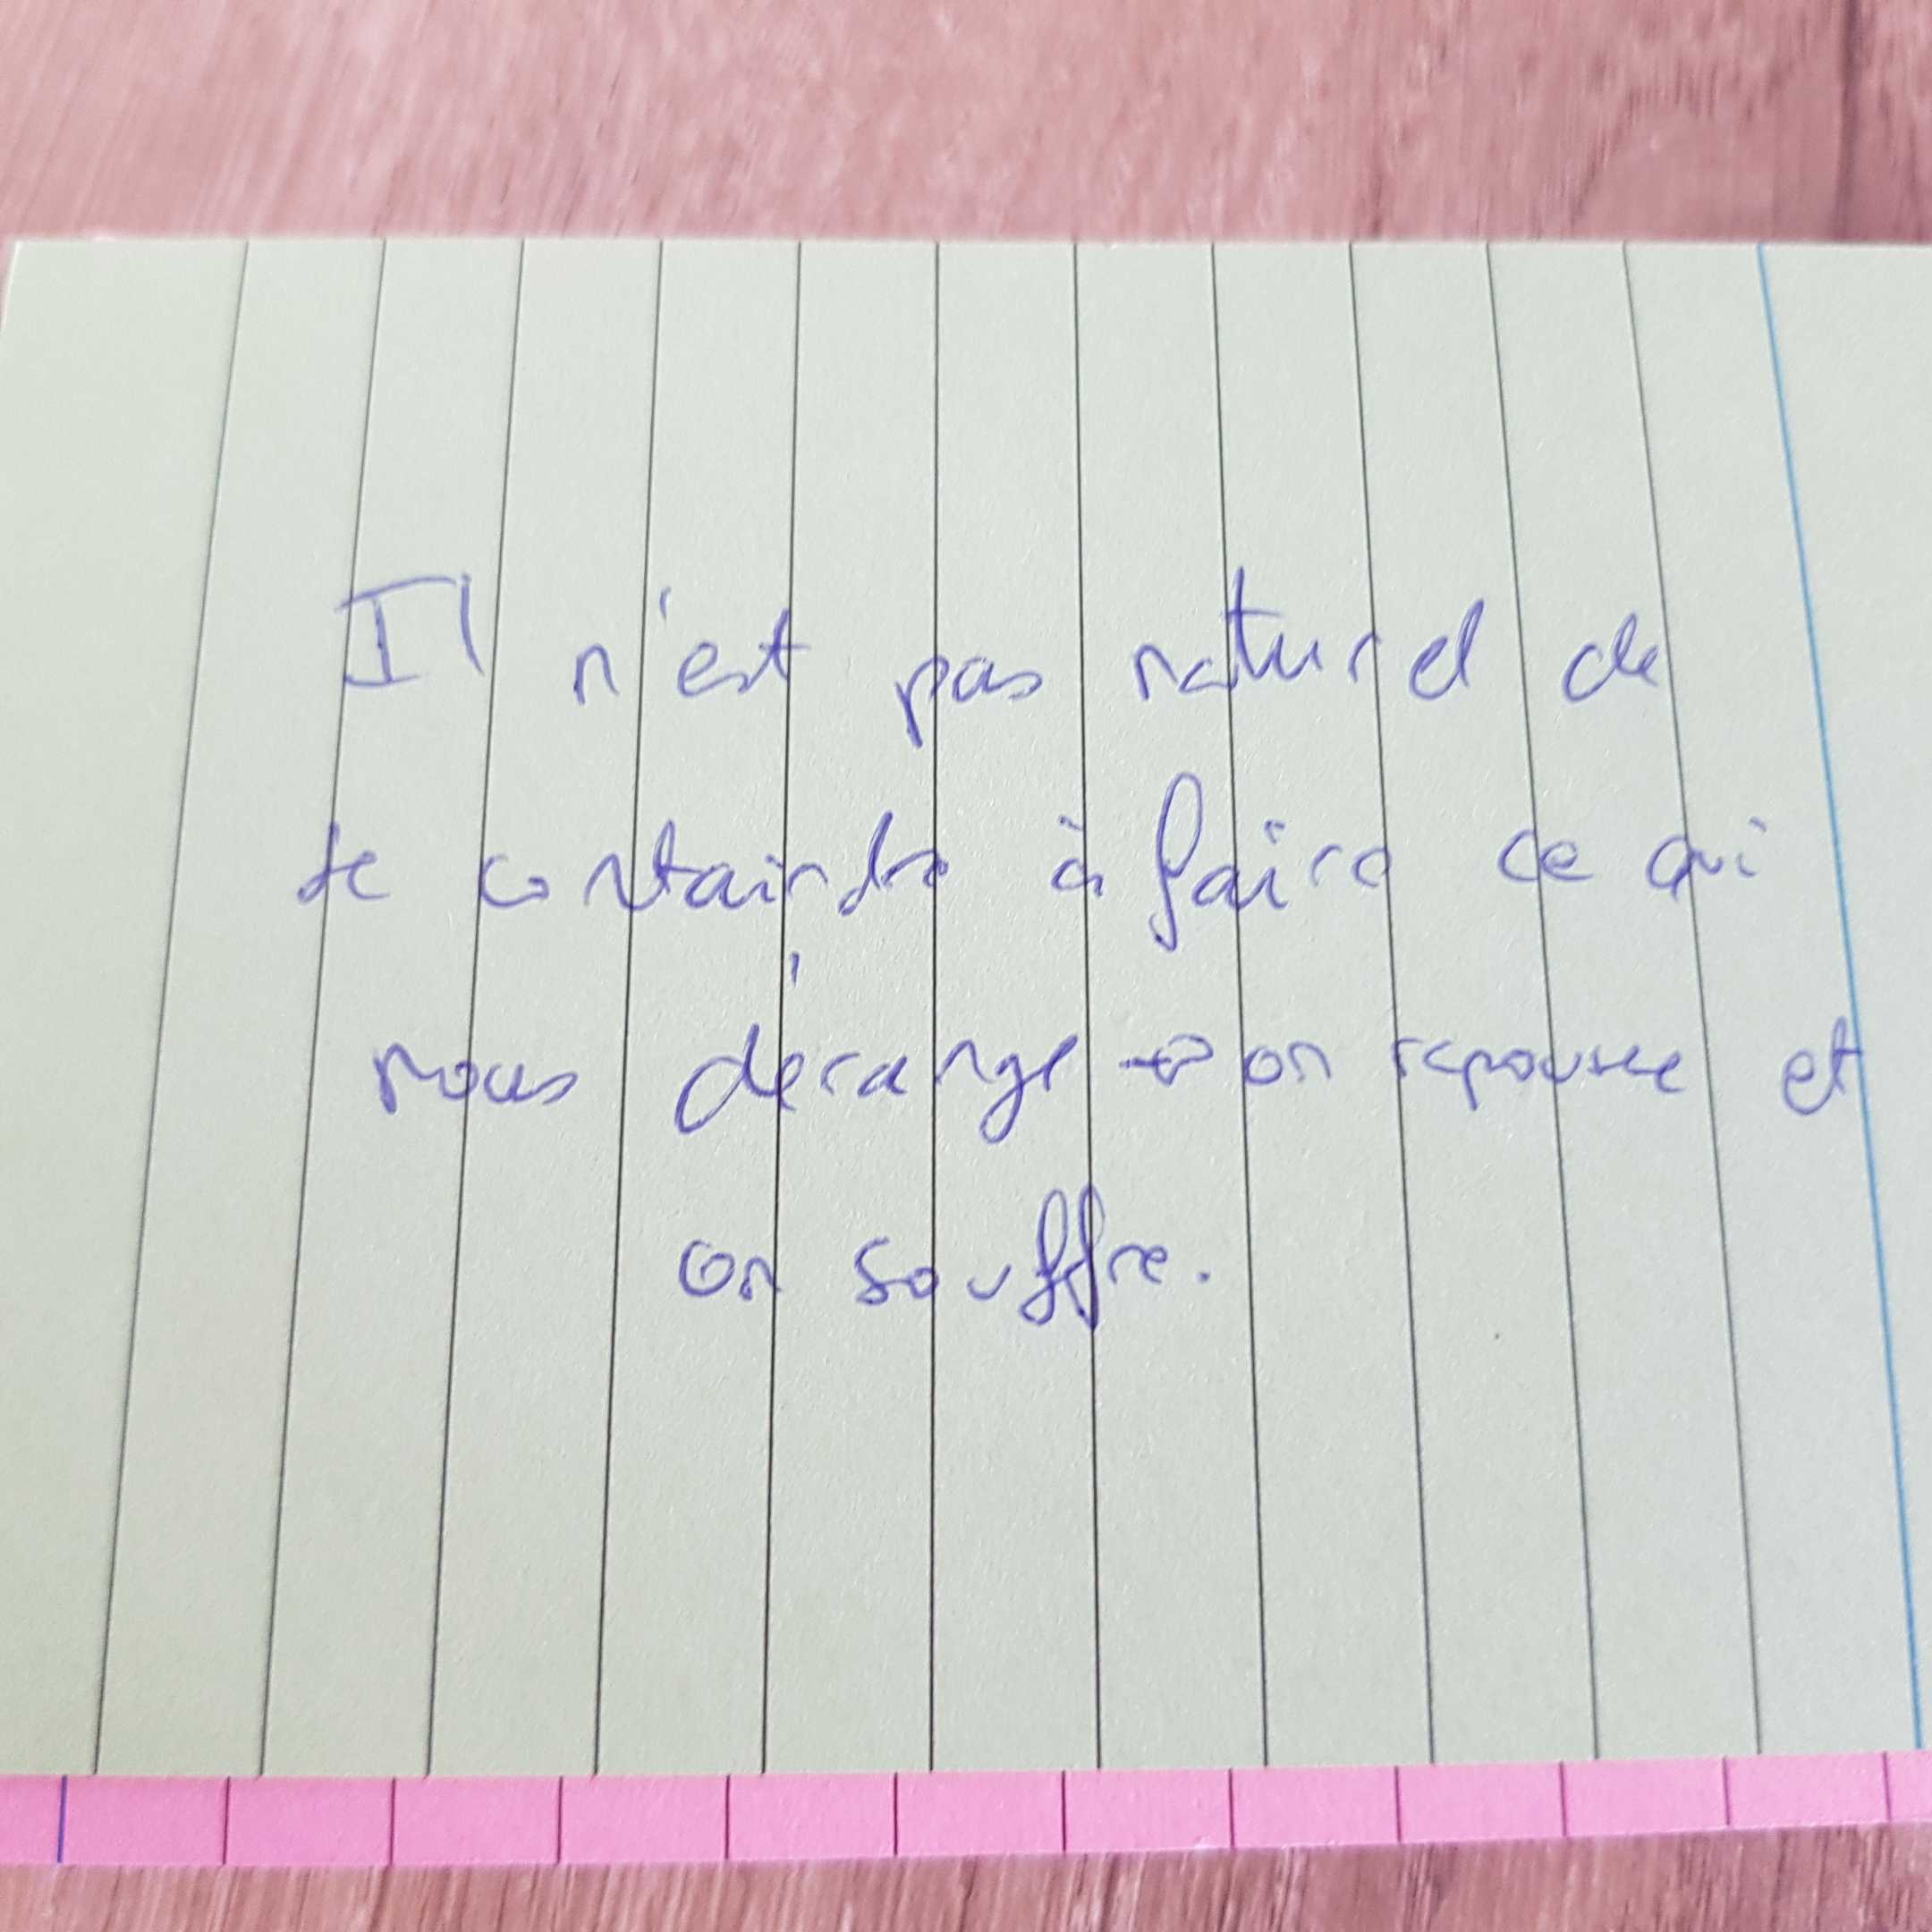 Il n'est pas naturel de
se containdre à faire ce qui
nous dérange → on repousse et
on souffre.